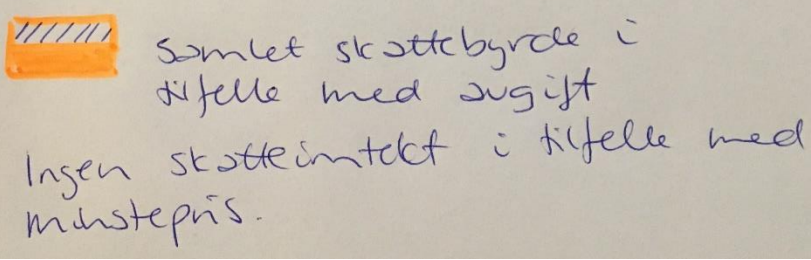 Samlet skattebyrde i
tilfelle med avgift
Ingen skatteinntekt i tilfelle med
minstepris.